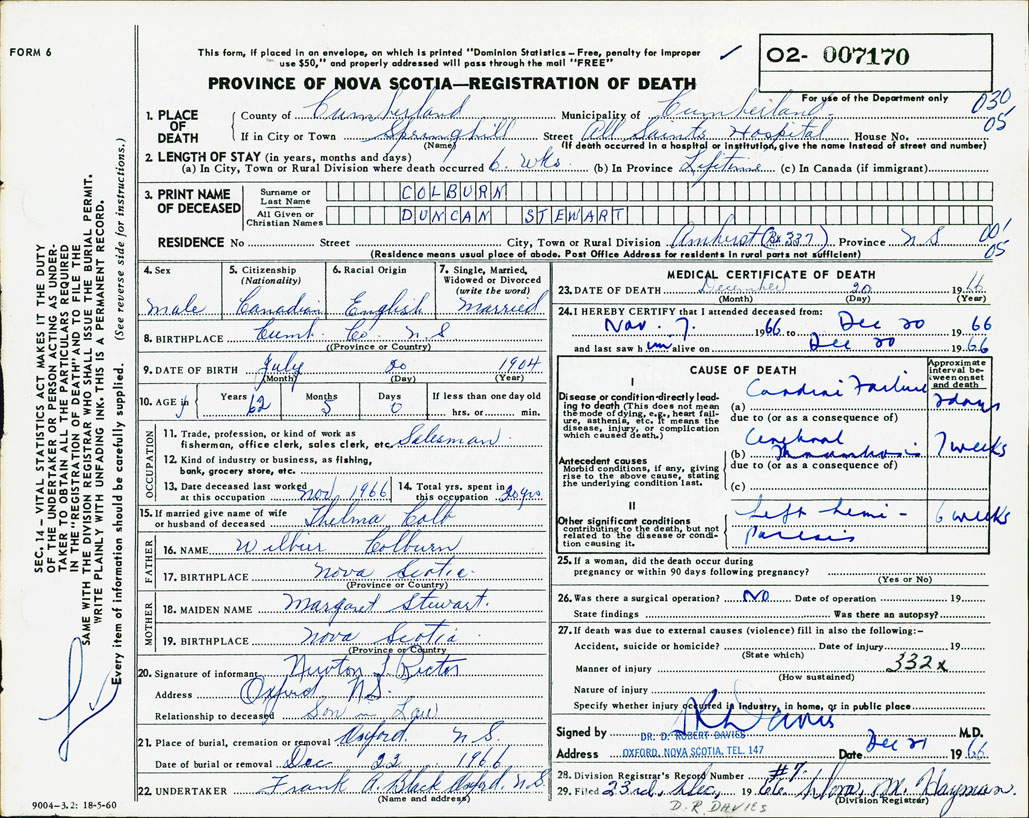 FORM 6
This form, if placed in an envelope, on which is printed "Dominion Statistics – Free, penalty for improper
use $50," and properly addressed will pass through the mail "FREE"
02- 007170
PROVINCE OF NOVA SCOTIA—REGISTRATION OF DEATH
For use of the Department only
030
05
1. PLACE OF DEATH
County of Cumberland Municipality of Cumberland
If in City or Town Springhill Street All Saints Hospital House No.
(Name) (If death occurred in a hospital or institution, give the name instead of street and number)
2. LENGTH OF STAY (in years, months and days)
(a) In City, Town or Rural Division where death occurred 6 wks. (b) In Province Lifetime (c) In Canada (if immigrant)
3. PRINT NAME OF DECEASED
Surname or Last Name COLBURN
All Given or Christian Names DUNCAN STEWART
RESIDENCE No Street City, Town or Rural Division Amherst (Bx 337) Province N S
001
05
(Residence means usual place of abode. Post Office Address for residents in rural parts not sufficient)
4. Sex male
5. Citizenship (Nationality) Canadian
6. Racial Origin English
7. Single, Married, Widowed or Divorced (write the word) Married
8. BIRTHPLACE Cumb. Co. N.S
((Province or Country)
9. DATE OF BIRTH July 20 1904
(Month) (Day) (Year)
10. AGE in Years 62 Months 5 Days 0 If less than one day old hrs. or min.
OCCUPATION
11. Trade, profession, or kind of work as fisherman, office clerk, sales clerk, etc. Salesman
12. Kind of industry or business, as fishing, bank, grocery store, etc.
13. Date deceased last worked at this occupation Nov 1966
14. Total yrs. spent in this occupation 20 yrs
15. If married give name of wife or husband of deceased Thelma Colb
FATHER
16. NAME Wilbur Colburn
17. BIRTHPLACE Nova Scotia
(Province or Country)
MOTHER
18. MAIDEN NAME Margaret Stewart.
19. BIRTHPLACE Nova Scotia
(Province or Country
20. Signature of informant Newton L Rector
Address Oxford N.S.
Relationship to deceased Son in Law
21. Place of burial, cremation or removal Oxford N S
Date of burial or removal Dec 22 1966
22. UNDERTAKER Frank A. Black Oxford N.S
(Name and address)
9004–3.2: 18-5-60
MEDICAL CERTIFICATE OF DEATH
23. DATE OF DEATH December 20 1966
(Month) (Day) (Year)
24. I HEREBY CERTIFY that I attended deceased from:
Nov. 7. 1966 to Dec 20 1966
and last saw h im alive on Dec 20 1966
CAUSE OF DEATH
Approximate interval between onset and death
I
Disease or condition directly leading to death (This does not mean the mode of dying, e.g., heart failure, asthenia, etc. It means the disease, injury, or complication which caused death.)
(a) Cardiac Failure 2 days
due to (or as a consequence of)
Antecedent causes
Morbid conditions, if any, giving rise to the above cause, stating the underlying condition last.
(b) Cerebral Thrombosis 7 weeks
due to (or as a consequence of)
(c)
II
Other significant conditions
contributing to the death, but not related to the disease or condition causing it.
Left Hemi-
Paresis 6 weeks
25. If a woman, did the death occur during pregnancy or within 90 days following pregnancy?
(Yes or No)
26. Was there a surgical operation? No Date of operation 19
State findings Was there an autopsy?
27. If death was due to external causes (violence) fill in also the following:–
Accident, suicide or homicide? Date of injury 19
(State which)
Manner of injury 332x
(How sustained)
Nature of injury
Specify whether injury occurred in industry, in home, or in public place
Signed by D R Davis M.D.
DR. D. ROBERT DAVIES
Address OXFORD, NOVA SCOTIA, TEL. 147 Date Dec 21 1966
28. Division Registrar's Record Number #7.
29. Filed 23rd Dec, 1966 M. Hayman.
(Division Registrar)
D.R. DAVIES
SEC. 14 – VITAL STATISTICS ACT MAKES IT THE DUTY
OF THE UNDERTAKER OR PERSON ACTING AS UNDER-
TAKER TO OBTAIN ALL THE PARTICULARS REQUIRED
IN THE "REGISTRATION OF DEATH" AND TO FILE THE
SAME WITH THE DIVISION REGISTRAR WHO SHALL ISSUE THE BURIAL PERMIT.
WRITE PLAINLY WITH UNFADING INK. THIS IS A PERMANENT RECORD.
Every item of information should be carefully supplied. (See reverse side for instructions.)